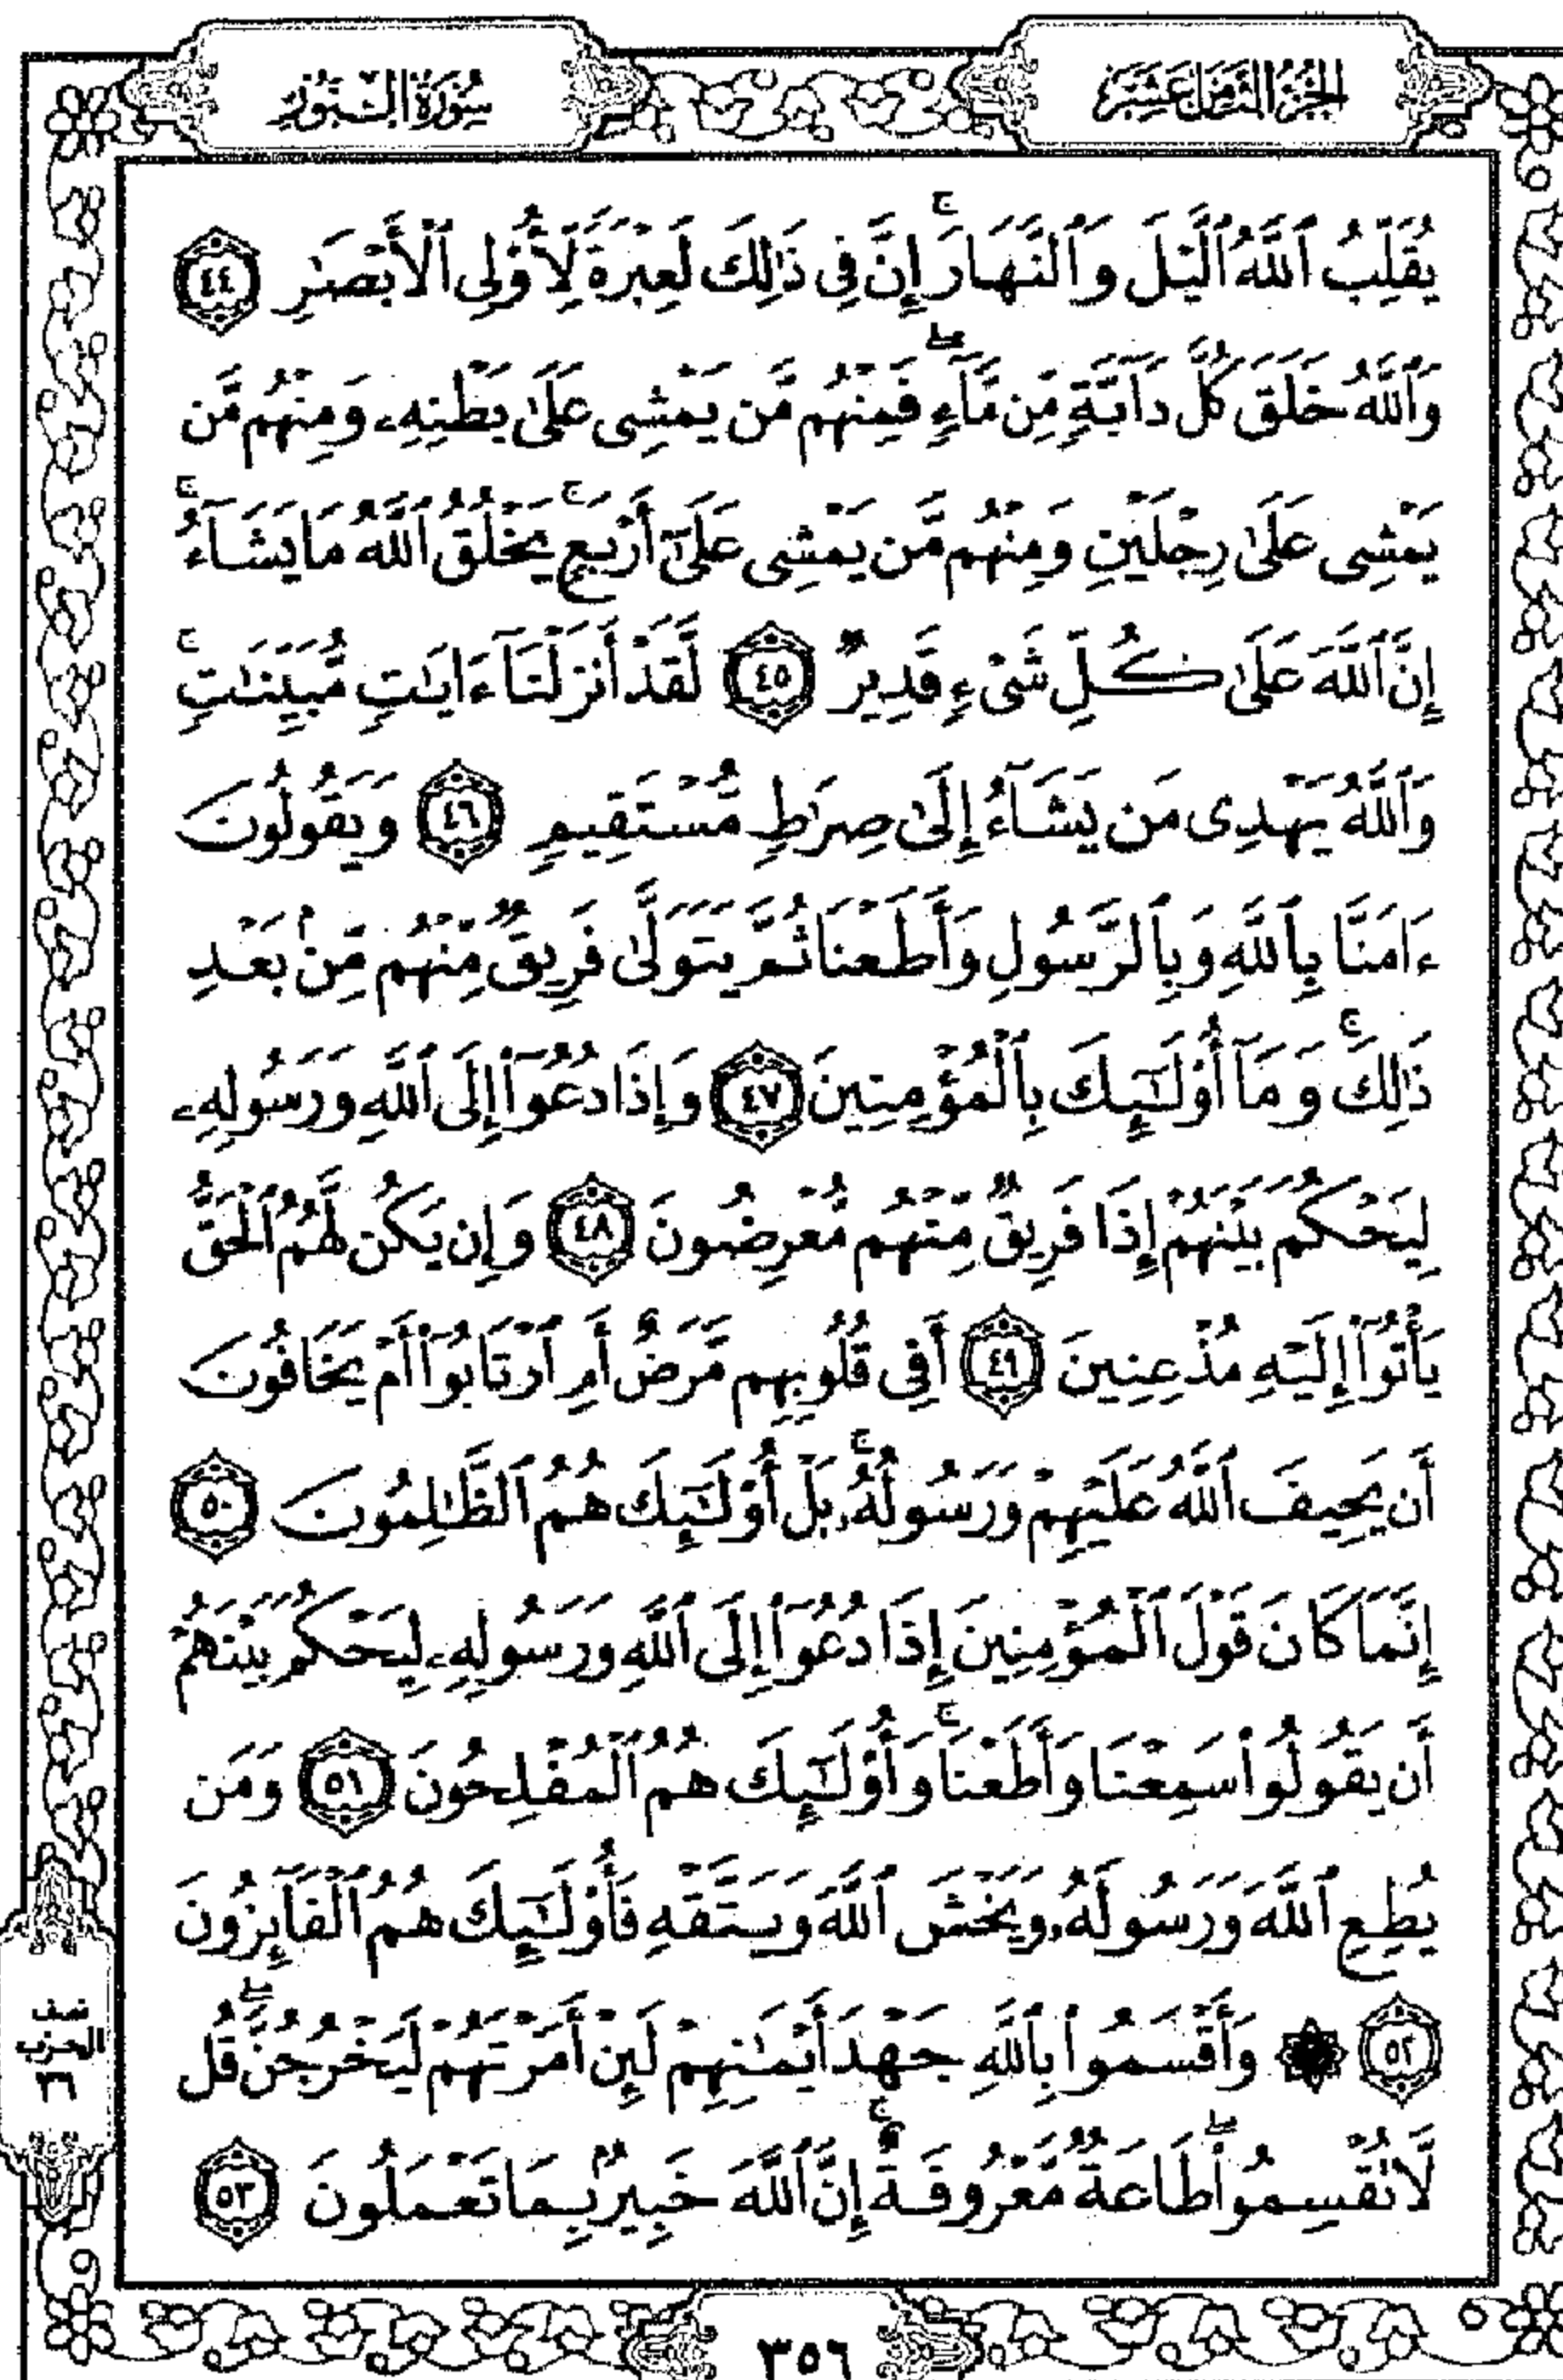 الجزء الثامن عشر
سورة النور
يُقَلِّبُ ٱللَّهُ ٱلَّيْلَ وَٱلنَّهَارَ ۚ إِنَّ فِى ذَٰلِكَ لَعِبْرَةً لِّأُو۟لِى ٱلْأَبْصَـٰرِ ٤٤
وَٱللَّهُ خَلَقَ كُلَّ دَآبَّةٍ مِّن مَّآءٍ ۖ فَمِنْهُم مَّن يَمْشِى عَلَىٰ بَطْنِهِۦ وَمِنْهُم مَّن
يَمْشِى عَلَىٰ رِجْلَيْنِ وَمِنْهُم مَّن يَمْشِى عَلَىٰٓ أَرْبَعٍ ۚ يَخْلُقُ ٱللَّهُ مَا يَشَآءُ ۚ
إِنَّ ٱللَّهَ عَلَىٰ كُلِّ شَىْءٍ قَدِيرٌ ٤٥ لَّقَدْ أَنزَلْنَآ ءَايَـٰتٍ مُّبَيِّنَـٰتٍ ۚ
وَٱللَّهُ يَهْدِى مَن يَشَآءُ إِلَىٰ صِرَٰطٍ مُّسْتَقِيمٍ ٤٦ وَيَقُولُونَ
ءَامَنَّا بِٱللَّهِ وَبِٱلرَّسُولِ وَأَطَعْنَا ثُمَّ يَتَوَلَّىٰ فَرِيقٌ مِّنْهُم مِّنۢ بَعْدِ
ذَٰلِكَ ۚ وَمَآ أُو۟لَـٰٓئِكَ بِٱلْمُؤْمِنِينَ ٤٧ وَإِذَا دُعُوٓا۟ إِلَى ٱللَّهِ وَرَسُولِهِۦ
لِيَحْكُمَ بَيْنَهُمْ إِذَا فَرِيقٌ مِّنْهُم مُّعْرِضُونَ ٤٨ وَإِن يَكُن لَّهُمُ ٱلْحَقُّ
يَأْتُوٓا۟ إِلَيْهِ مُذْعِنِينَ ٤٩ أَفِى قُلُوبِهِم مَّرَضٌ أَمِ ٱرْتَابُوٓا۟ أَمْ يَخَافُونَ
أَن يَحِيفَ ٱللَّهُ عَلَيْهِمْ وَرَسُولُهُۥ ۚ بَلْ أُو۟لَـٰٓئِكَ هُمُ ٱلظَّـٰلِمُونَ ٥٠
إِنَّمَا كَانَ قَوْلَ ٱلْمُؤْمِنِينَ إِذَا دُعُوٓا۟ إِلَى ٱللَّهِ وَرَسُولِهِۦ لِيَحْكُمَ بَيْنَهُمْ
أَن يَقُولُوا۟ سَمِعْنَا وَأَطَعْنَا ۚ وَأُو۟لَـٰٓئِكَ هُمُ ٱلْمُفْلِحُونَ ٥١ وَمَن
يُطِعِ ٱللَّهَ وَرَسُولَهُۥ وَيَخْشَ ٱللَّهَ وَيَتَّقْهِ فَأُو۟لَـٰٓئِكَ هُمُ ٱلْفَآئِزُونَ
٥٢ ۞ وَأَقْسَمُوا۟ بِٱللَّهِ جَهْدَ أَيْمَـٰنِهِمْ لَئِنْ أَمَرْتَهُمْ لَيَخْرُجُنَّ ۖ قُل
لَّا تُقْسِمُوا۟ ۖ طَاعَةٌ مَّعْرُوفَةٌ ۚ إِنَّ ٱللَّهَ خَبِيرٌۢ بِمَا تَعْمَلُونَ ٥٣
نصف
الحزب
٣٦
٣٥٦